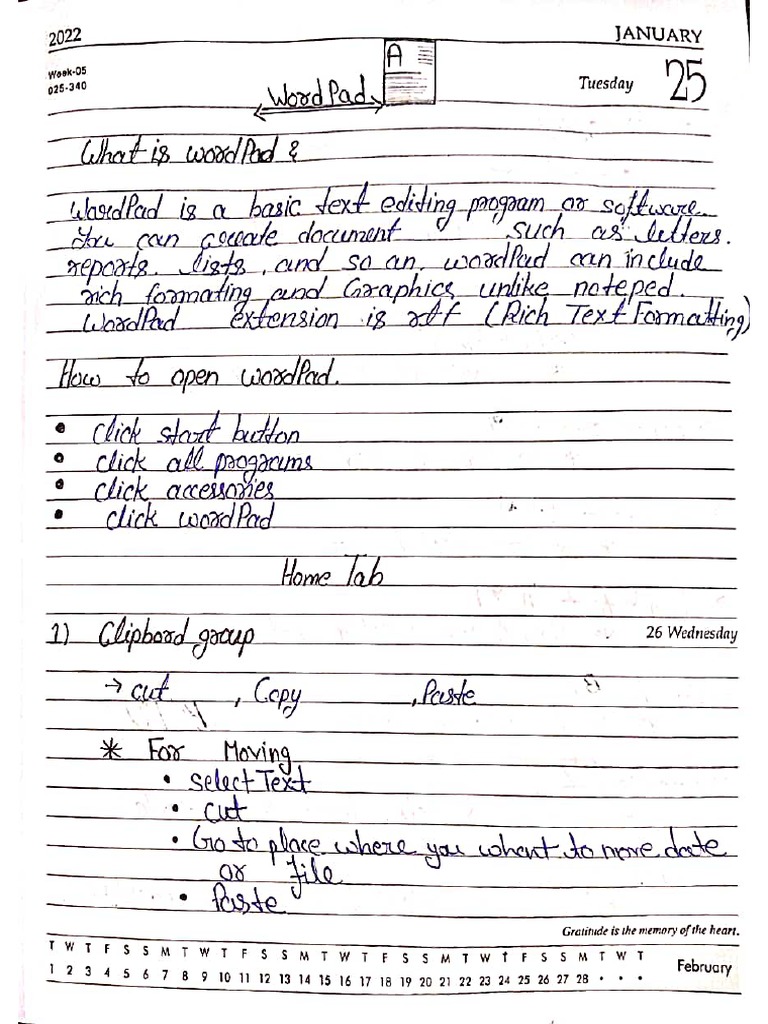 2022
JANUARY
Week-05
025-340
Tuesday 25
A
WordPad
What is wordPad ?
WordPad is a basic text editing program or software.
You can create document such as letters.
reports. lists, and so on. wordPad can include
rich formating and Graphics unlike noteped.
WordPad extension is rtf (Rich Text Formatting)
How to open wordPad.
• click start button
• click all programs
• click accessories
• click wordPad
Home Tab
1) Clipbord group
26 Wednesday
→ cut , Copy , Paste
* For Moving
• select Text
• cut
• Go to place where you whant to move date
or file
• Paste
Gratitude is the memory of the heart.
T W T F S S M T W T F S S M T W T F S S M T W T F S S M T W T
1 2 3 4 5 6 7 8 9 10 11 12 13 14 15 16 17 18 19 20 21 22 23 24 25 26 27 28 • • •
February